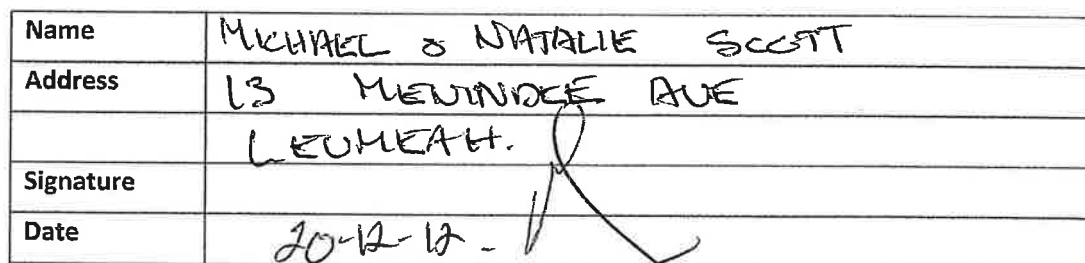 Name MICHAEL & NATALIE SCOTT
Address 13 MENINDEE AVE
LEUMEAH.
Signature
Date 20-12-12.